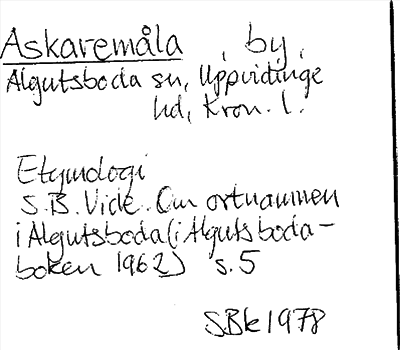 Askaremåla , by,
Algutsboda sn, Uppvidinge
hd, Kron. l.
Etymologi
S.B. Vide. Om ortnamnen
i Algutsboda (i Algutsboda-
boken 1962) s. 5
SBk 1978